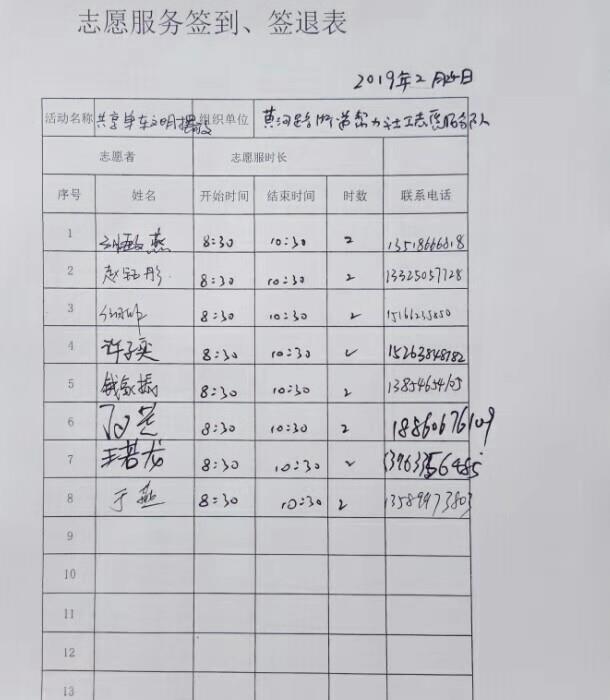 志愿服务签到、签退表
2019年2月25日
活动名称 共享单车文明摆放 组织单位 黄河路街道 社工志愿服务队
志愿者 志愿服时长
序号 姓名 开始时间 结束时间 时数 联系电话
1 燕 8:30 10:30 2 13518666818
2 赵钰彤 8:30 10:30 2 13325057728
3 8:30 10:30 2 15166235850
4 许子奕 8:30 10:30 2 15263848782
5 钱家振 8:30 10:30 2 13854654105
6 8:30 10:30 2 18860676109
7 王若龙 8:30 10:30 2
8 于燕 8:30 10:30 2 13589973803
9
10
11
12
13